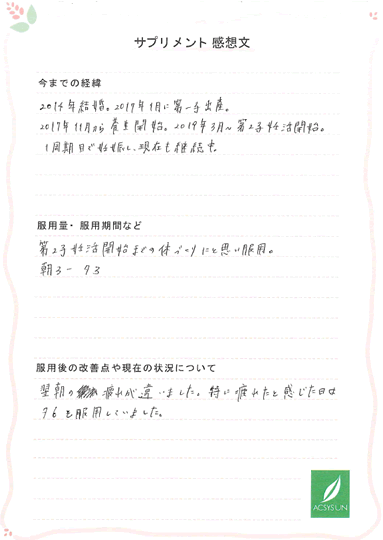 サプリメント 感想文
今までの経緯
2014年結婚。2017年1月に第一子出産。
2017年11月から養生開始。2019年3月〜第2子妊活開始。
1周期目で妊娠し、現在も継続中。
服用量・服用期間など
第2子妊活開始までの体づくりにと思い服用。
朝3ー夕3
服用後の改善点や現在の状況について
翌朝の疲れが違いました。特に疲れたと感じた日は
夕6を服用していました。
ACSYSUN